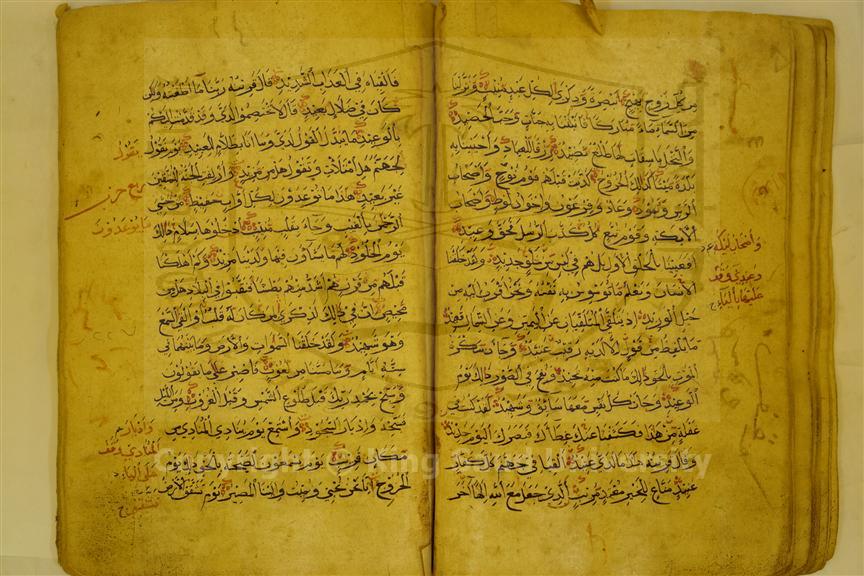 من كل زوج بهيج تبصرة وذكرى لكل عبد منيب ونزلنا
من السماء ماء مباركا فانبتنا به جنات وحب الحصيد
والنخل باسقات لها طلع نضيد رزقا للعباد واحيينا به
بلدة ميتا كذلك الخروج كذبت قبلهم قوم نوح واصحاب
الرس وثمود وعاد وفرعون واخوان لوط واصحاب
الايكة وقوم تبع كل كذب الرسل فحق وعيد
افعيينا بالخلق الاول بل هم في لبس من خلق جديد ولقد خلقنا
الانسان ونعلم ما توسوس به نفسه ونحن اقرب اليه من
حبل الوريد اذ يتلقى المتلقيان عن اليمين وعن الشمال قعيد
ما يلفظ من قول الا لديه رقيب عتيد وجاءت سكرة
الموت بالحق ذلك ما كنت منه تحيد ونفخ في الصور ذلك يوم
الوعيد وجاءت كل نفس معها سائق وشهيد لقد كنت في
غفلة من هذا فكشفنا عنك غطاءك فبصرك اليوم حديد
وقال قرينه هذا ما لدي عتيد القيا في جهنم كل كفار
عنيد مناع للخير معتد مريب الذي جعل مع الله الها آخر
واصحاب ليكة
وعيدي وقف
عليها بالياء
فالقياه في العذاب الشديد قال قرينه ربنا ما اطغيته ولكن
كان في ضلال بعيد قال لا تختصموا لدي وقد قدمت اليكم
بالوعيد ما يبدل القول لدي وما انا بظلام للعبيد يوم نقول
لجهنم هل امتلات وتقول هل من مزيد وازلفت الجنة للمتقين
غير بعيد هذا ما توعدون لكل اواب حفيظ من خشي
الرحمن بالغيب وجاء بقلب منيب ادخلوها بسلام ذلك
يوم الخلود لهم ما يشاؤن فيها ولدينا مزيد وكم اهلكنا
قبلهم من قرن هم اشد منهم بطشا فنقبوا في البلاد هل من
محيص ان في ذلك لذكرى لمن كان له قلب او القى السمع
وهو شهيد ولقد خلقنا السموات والارض وما بينهما في
ستة ايام وما مسنا من لغوب فاصبر على ما يقولون
وسبح بحمد ربك قبل طلوع الشمس وقبل الغروب ومن الليل
فسبحه وادبار السجود واستمع يوم ينادي المنادي من
مكان قريب يوم يسمعون الصيحة بالحق ذلك يوم
الخروج انا نحن نحيي ونميت والينا المصير يوم تشقق الارض
يقول
ما يوعدون
وادبار
المنادي وقف
على الياء
تشقق
Copyright © King Saud University